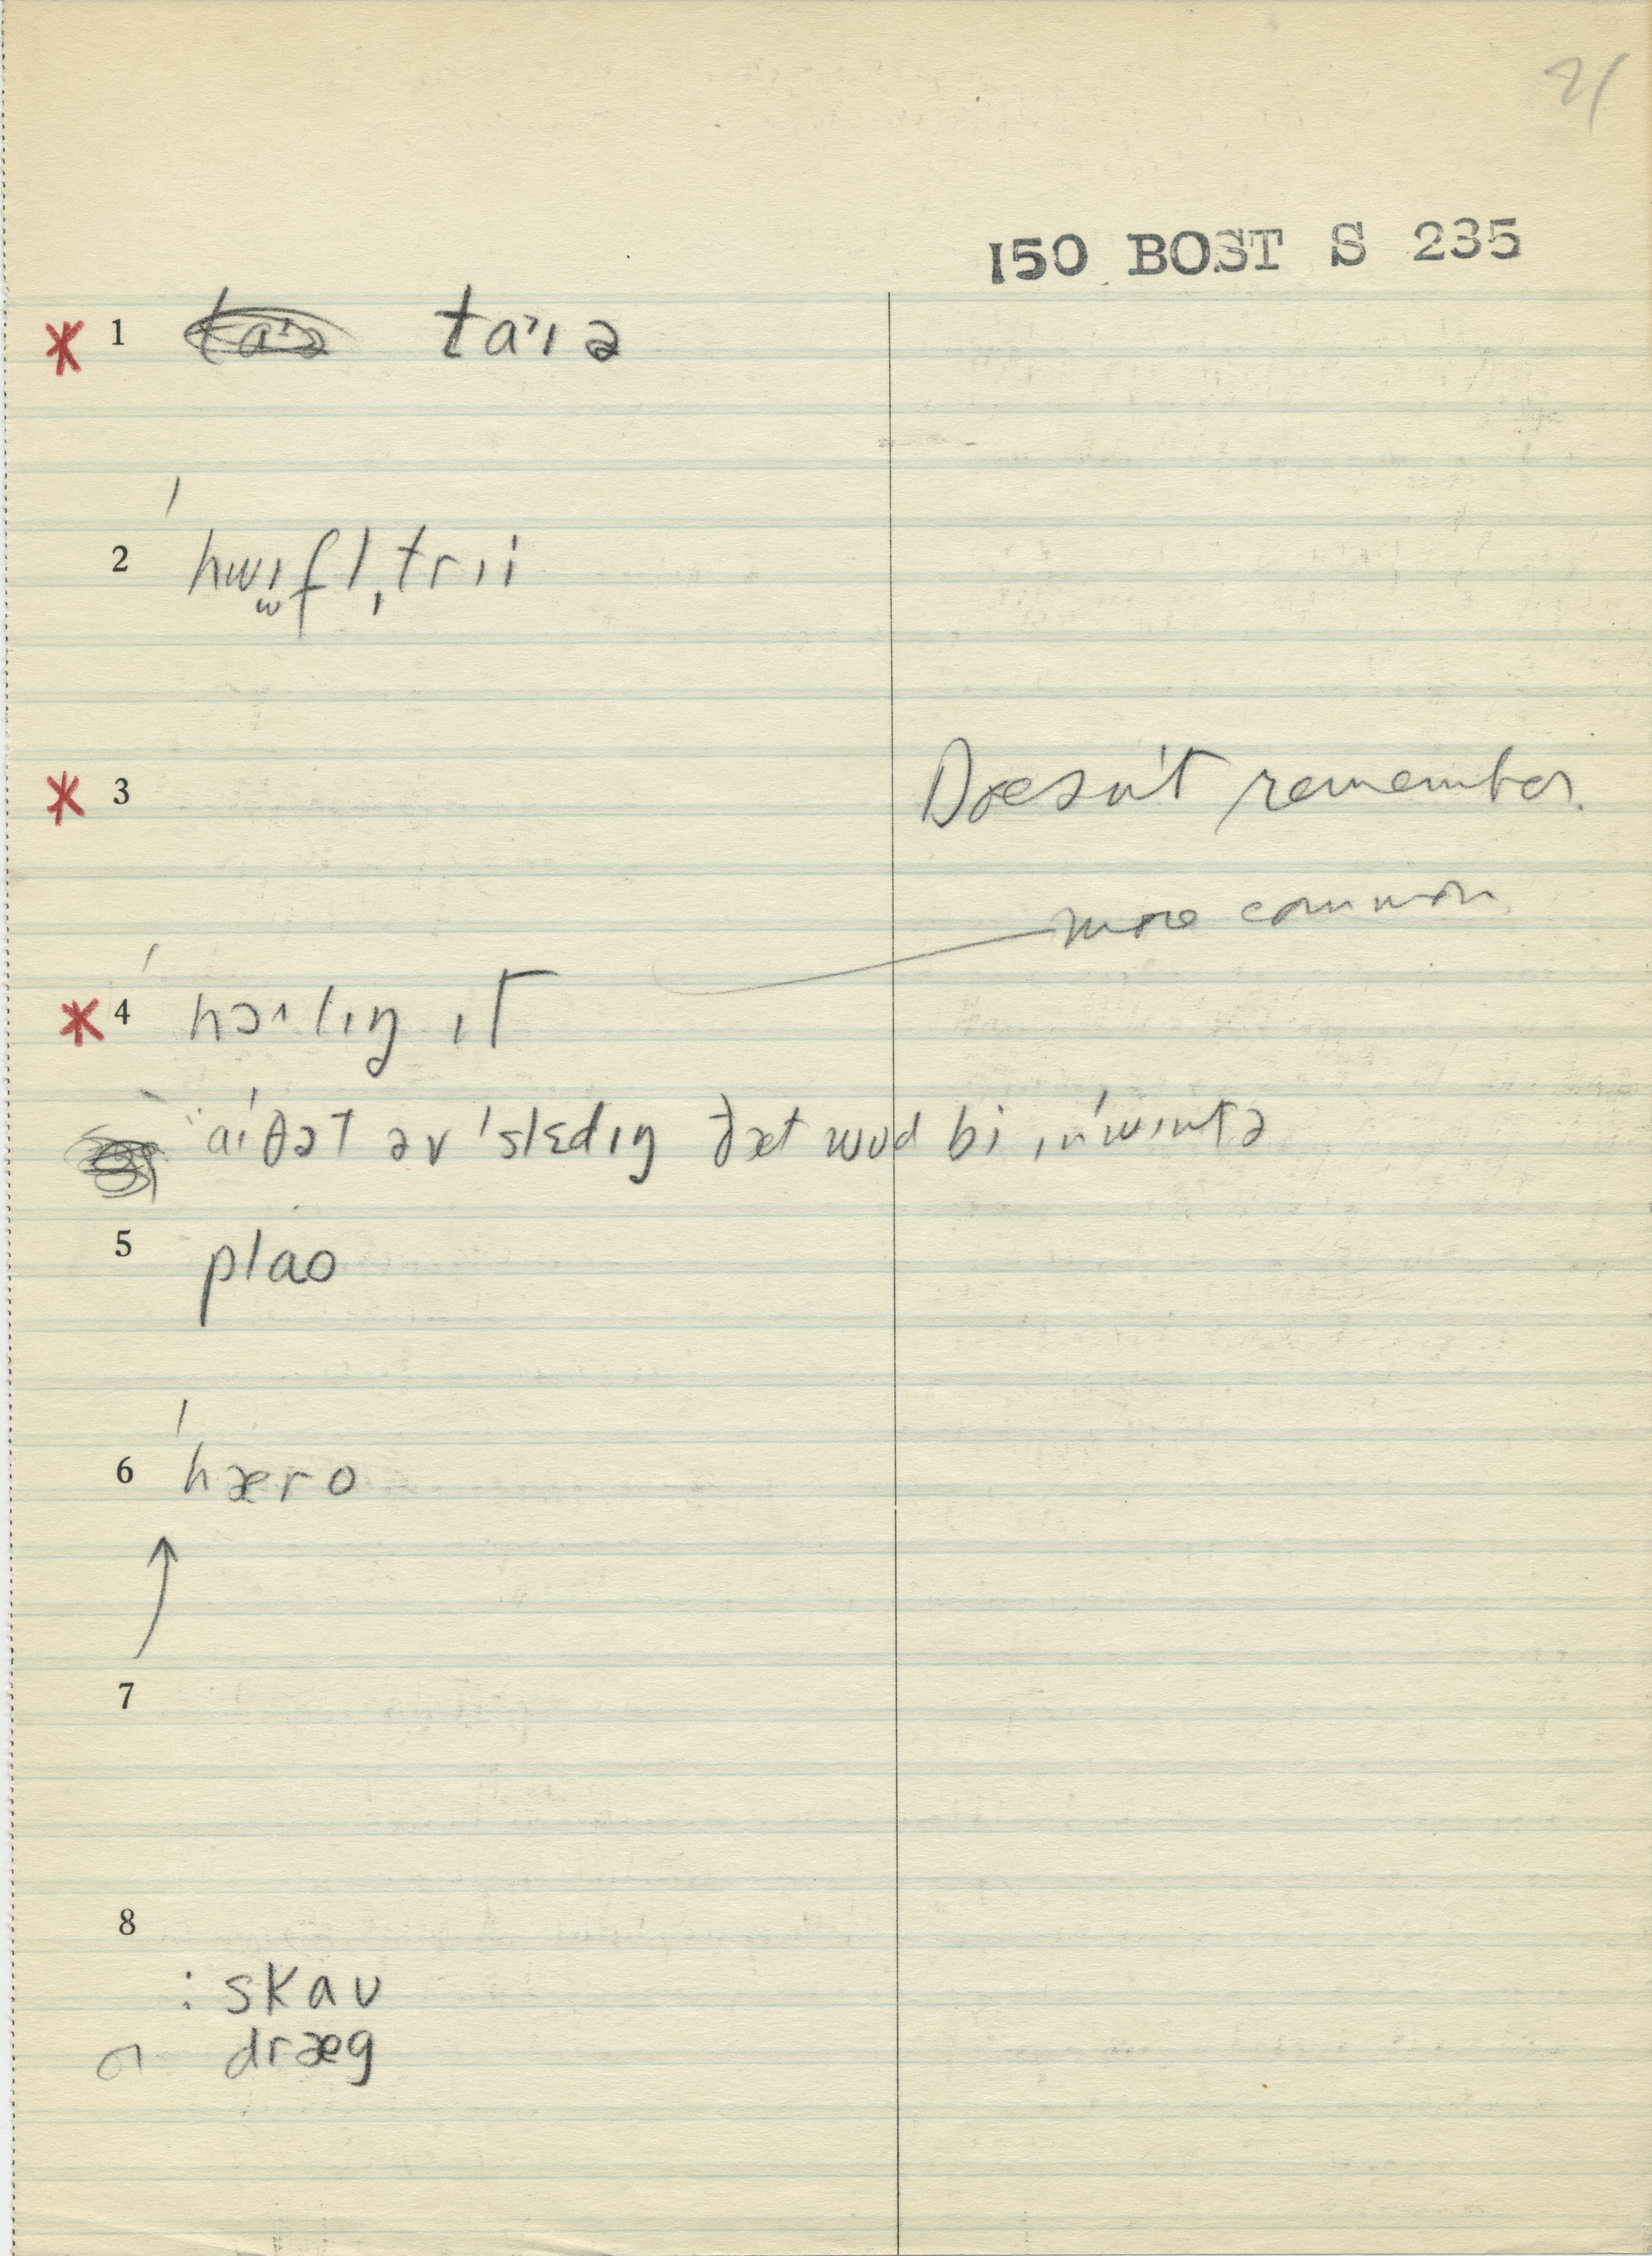 21
150 BOST S 235
* 1 taˈɪə
2 ˈhwɪfl̩trɪi
* 3 Doesn't remember.
more common
* 4 ˈhɔˑlɪŋ ɪt
aɪ θət əv ˈslɛdɪŋ ðæt wʊd bi ɪn ˈwɪntə
5 plao
6 ˈhæro
7
8
: skaʊ
dræg